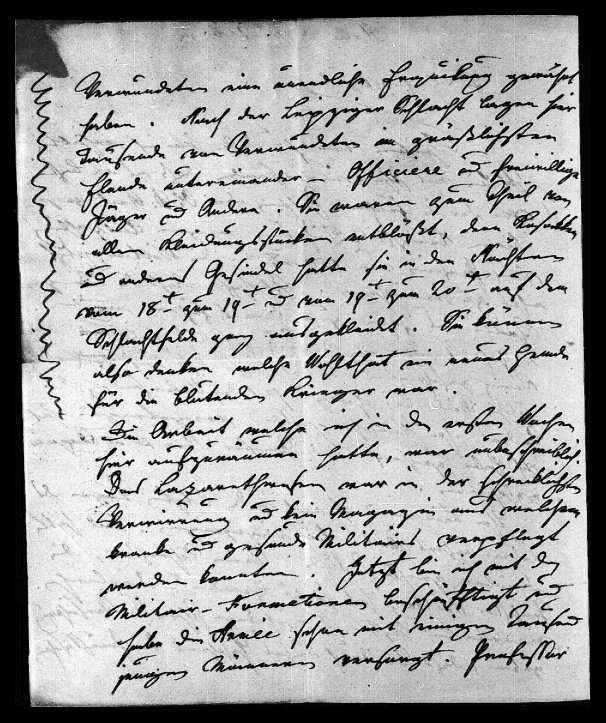 Verwundeten eine unendliche Erquikung gewährt
haben. Nach der Leipziger Schlacht lagen hier
Tausende von Verwundeten im gräßlichsten
Elende untereinander – Officiere und freiwillige
Jäger und Andere. Sie waren zum Theil von
allen Kleidungsstücken entblößt, denn Kosakken
und anderes Gesindel hatte sie in den Nächten
vom 18t zum 19t und vom 19t zum 20t auf dem
Schlachtfelde ganz ausgekleidet. Sie können
also denken welche Wohlthat ein neues Hemde
für die blutenden Krieger war.
Die Arbeit welche ich in den ersten Wochen
hier aufzuräumen hatte, war unbeschreiblich.
Das Lazarethwesen war in der schrecklichsten
Verwirrung und kein Magazin aus welchem
kranke und gesunde Militairs verpflegt
werden konnten. Jetzt bin ich mit den
Militair-Formationen beschäfftigt und
habe die Armée schon mit einigen Tausend
jungen Männern versorgt. Professor